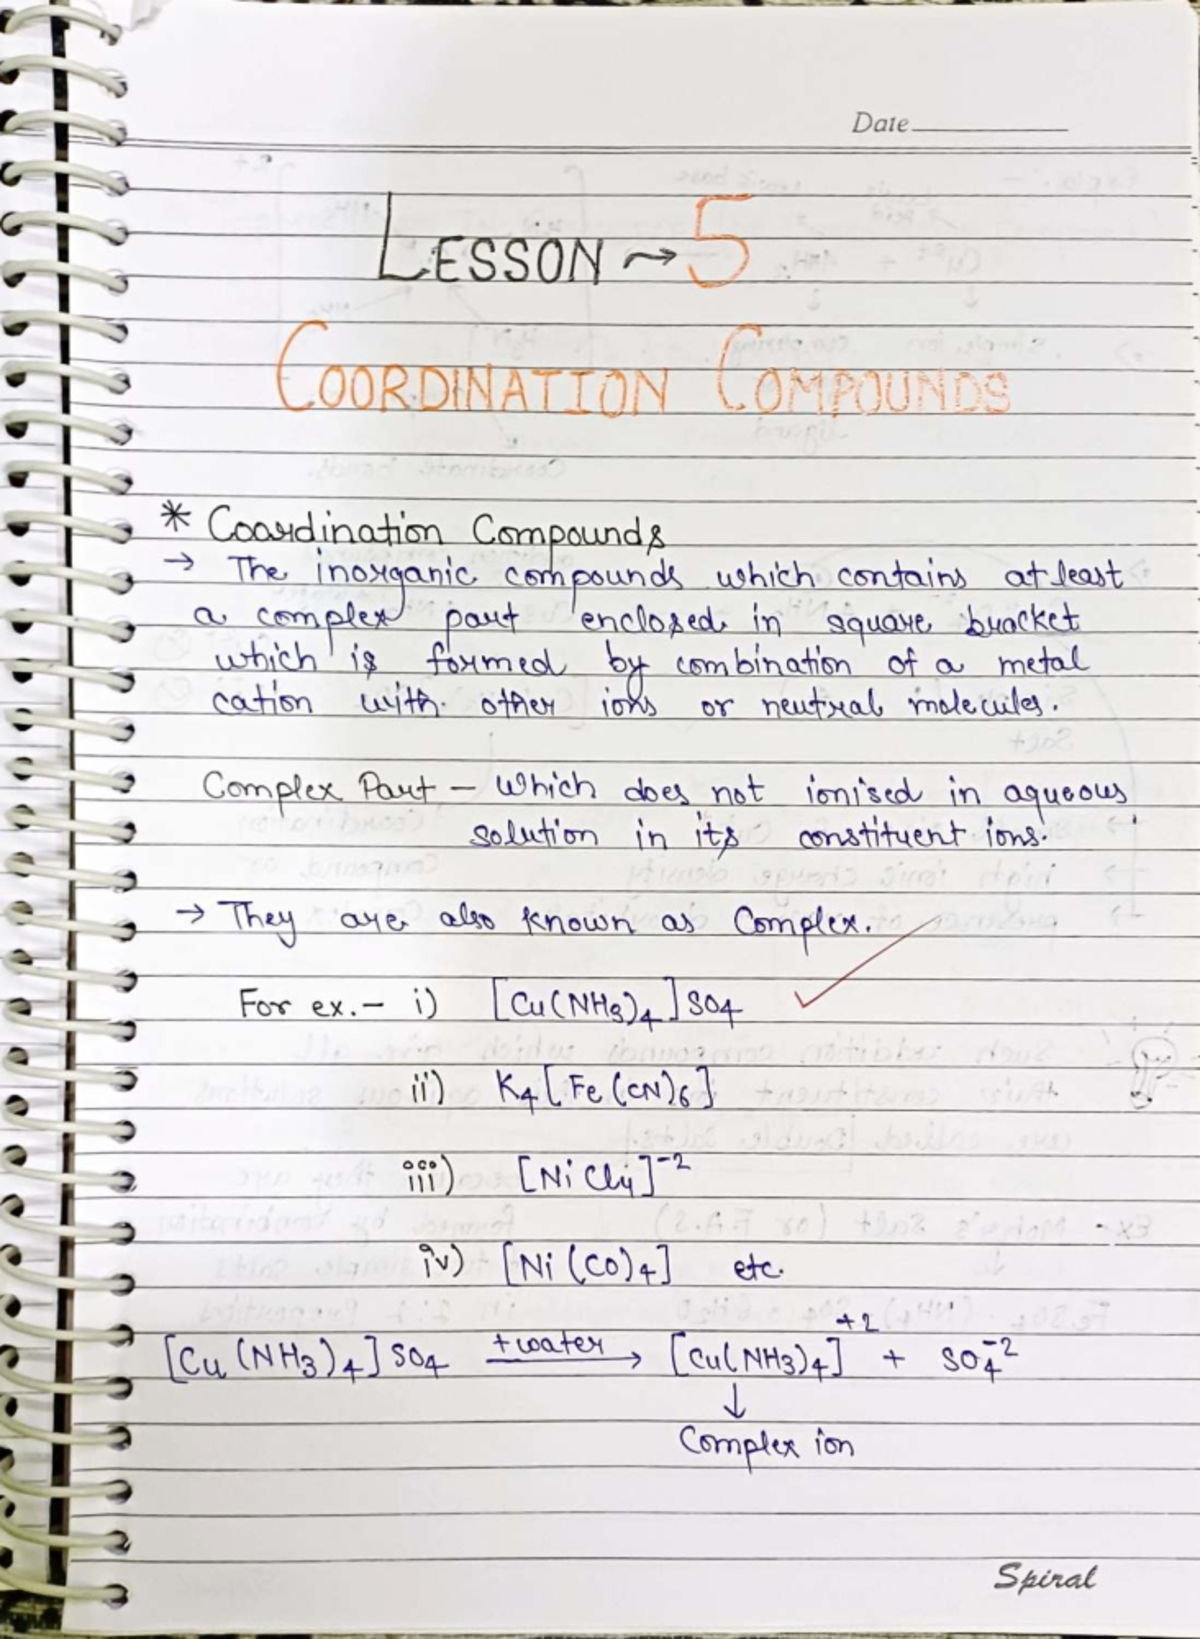 Date
LESSON ⤳ 5
COORDINATION COMPOUNDS
* Coordination Compounds
→ The inorganic compounds which contains at least
a complex part enclosed in square bracket
which is formed by combination of a metal
cation with other ions or neutral molecules.
Complex Part – Which does not ionised in aqueous
solution in its constituent ions.
→ They are also known as Complex.
For ex.- i) [Cu(NH3)4]SO4
ii) K4[Fe(CN)6]
iii) [NiCl4]⁻²
iv) [Ni(CO)4] etc.
[Cu(NH3)4]SO4 +water→ [Cu(NH3)4]⁺² + SO4⁻²
↓
Complex ion
Spiral